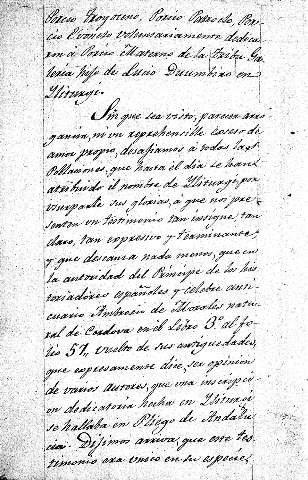 Porcio Troyoteno, Porcio Patroclo, Por-
cio Evoisto voluntariamente dedica-
ron á Porcio Materno de la Tribu Ga-
leria hijo de Lucio Decumbiro en
Yliturgi.
Sin que sea visto, parezca arro
gancia, ni un reprehensible exceso de
amor propio, desafiamos á todas las
Poblaciones, que hasta el dia se han
atribuido el nombre de Yliturgi, por
usurparle sus glorias, á que nos pre-
senten un testimonio tan insigne, tan
claro, tan expresivo y terminante
y que descansa nada menos, que en
la autoridad del Principe de los his
toriadores españoles y celebre anti
cuario Ambrosio de Morales natu
ral de Cordova en el Libro 3º al fo-
lio 57, vuelto de sus antiguedades,
que expresamente dice, ser opinion
de varios autores, que una inscripci
on dedicatoria hecha en Yliturgi
se hallaba en Pliego de Andalu
cia. Digimos arriva, que este tes-
timonio era unico en su especie,